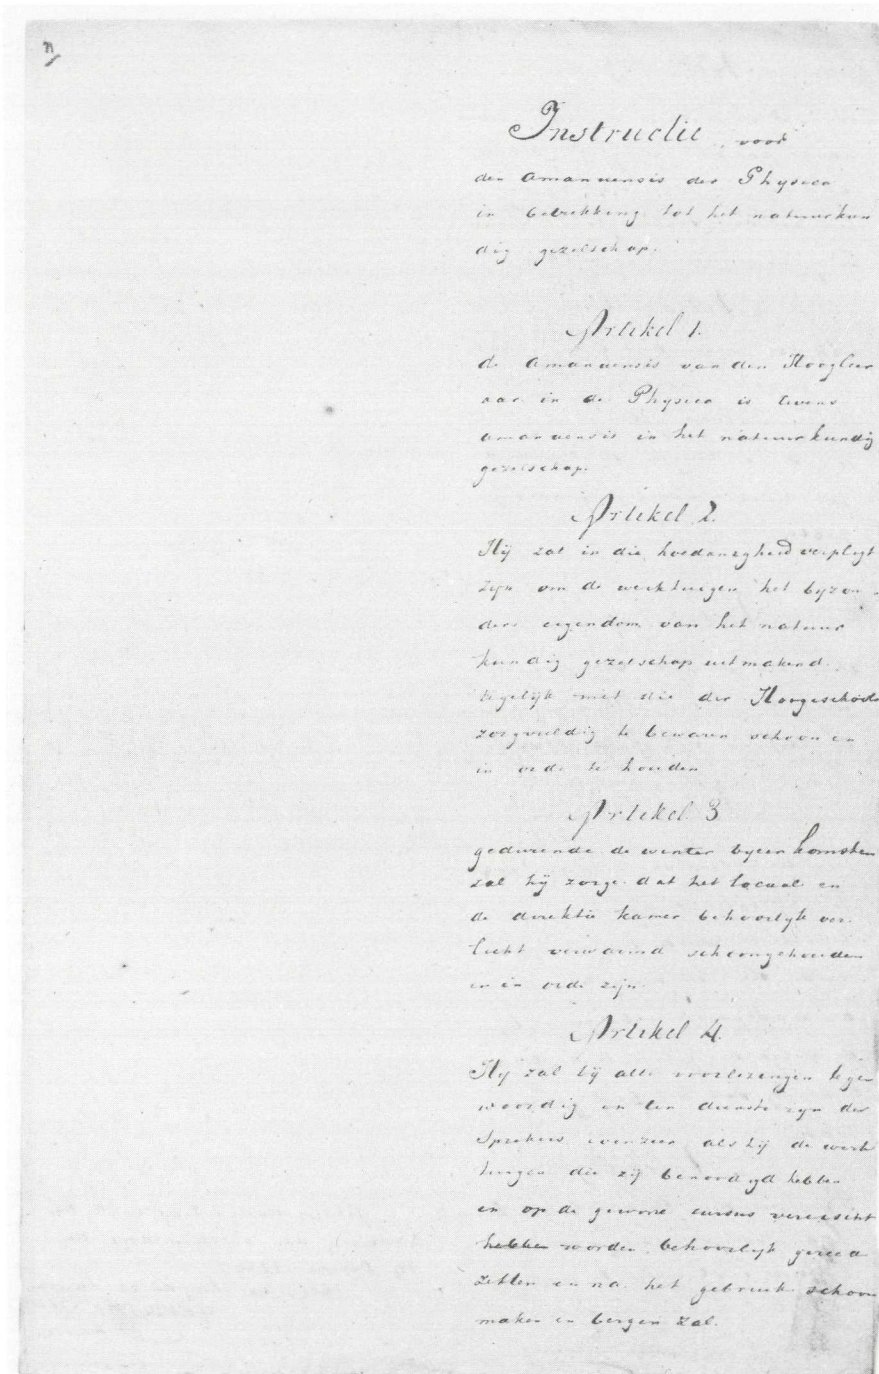 Instructie voor
den Amanuensis der Physica
in betrekking tot het natuurkun
dig gezelschap.
Artikel 1.
de Amanuensis van den Hoogleer
aar in de Physica is tevens
amanuensis in het natuurkundig
gezelschap.
Artikel 2.
Hij zal in die hoedanigheid verpligt
zijn om de werktuigen het byzon
dere eigendom van het natuur
kundig gezelschap uitmakend
tegelijk met die der Hoogeschool
zorgvuldig te bewaren schoon en
in orde te houden
Artikel 3
gedurende de winter byeenkomsten
zal hij zorge dat het locaal en
de direktie kamer behoorlijk ver
licht verwarmd schoongehouden
en in orde zijn.
Artikel 4.
Hy zal bij alle voorlezingen tegen
woordig en ten dienste zyn der
Sprekers evenzeer als hij de werk
tuigen die zij benoodigd hebben
en op de gewone cursus vereischt
hebben worden behoorlijk gereed
zetten en na het gebruik schoon
maken en bergen zal.